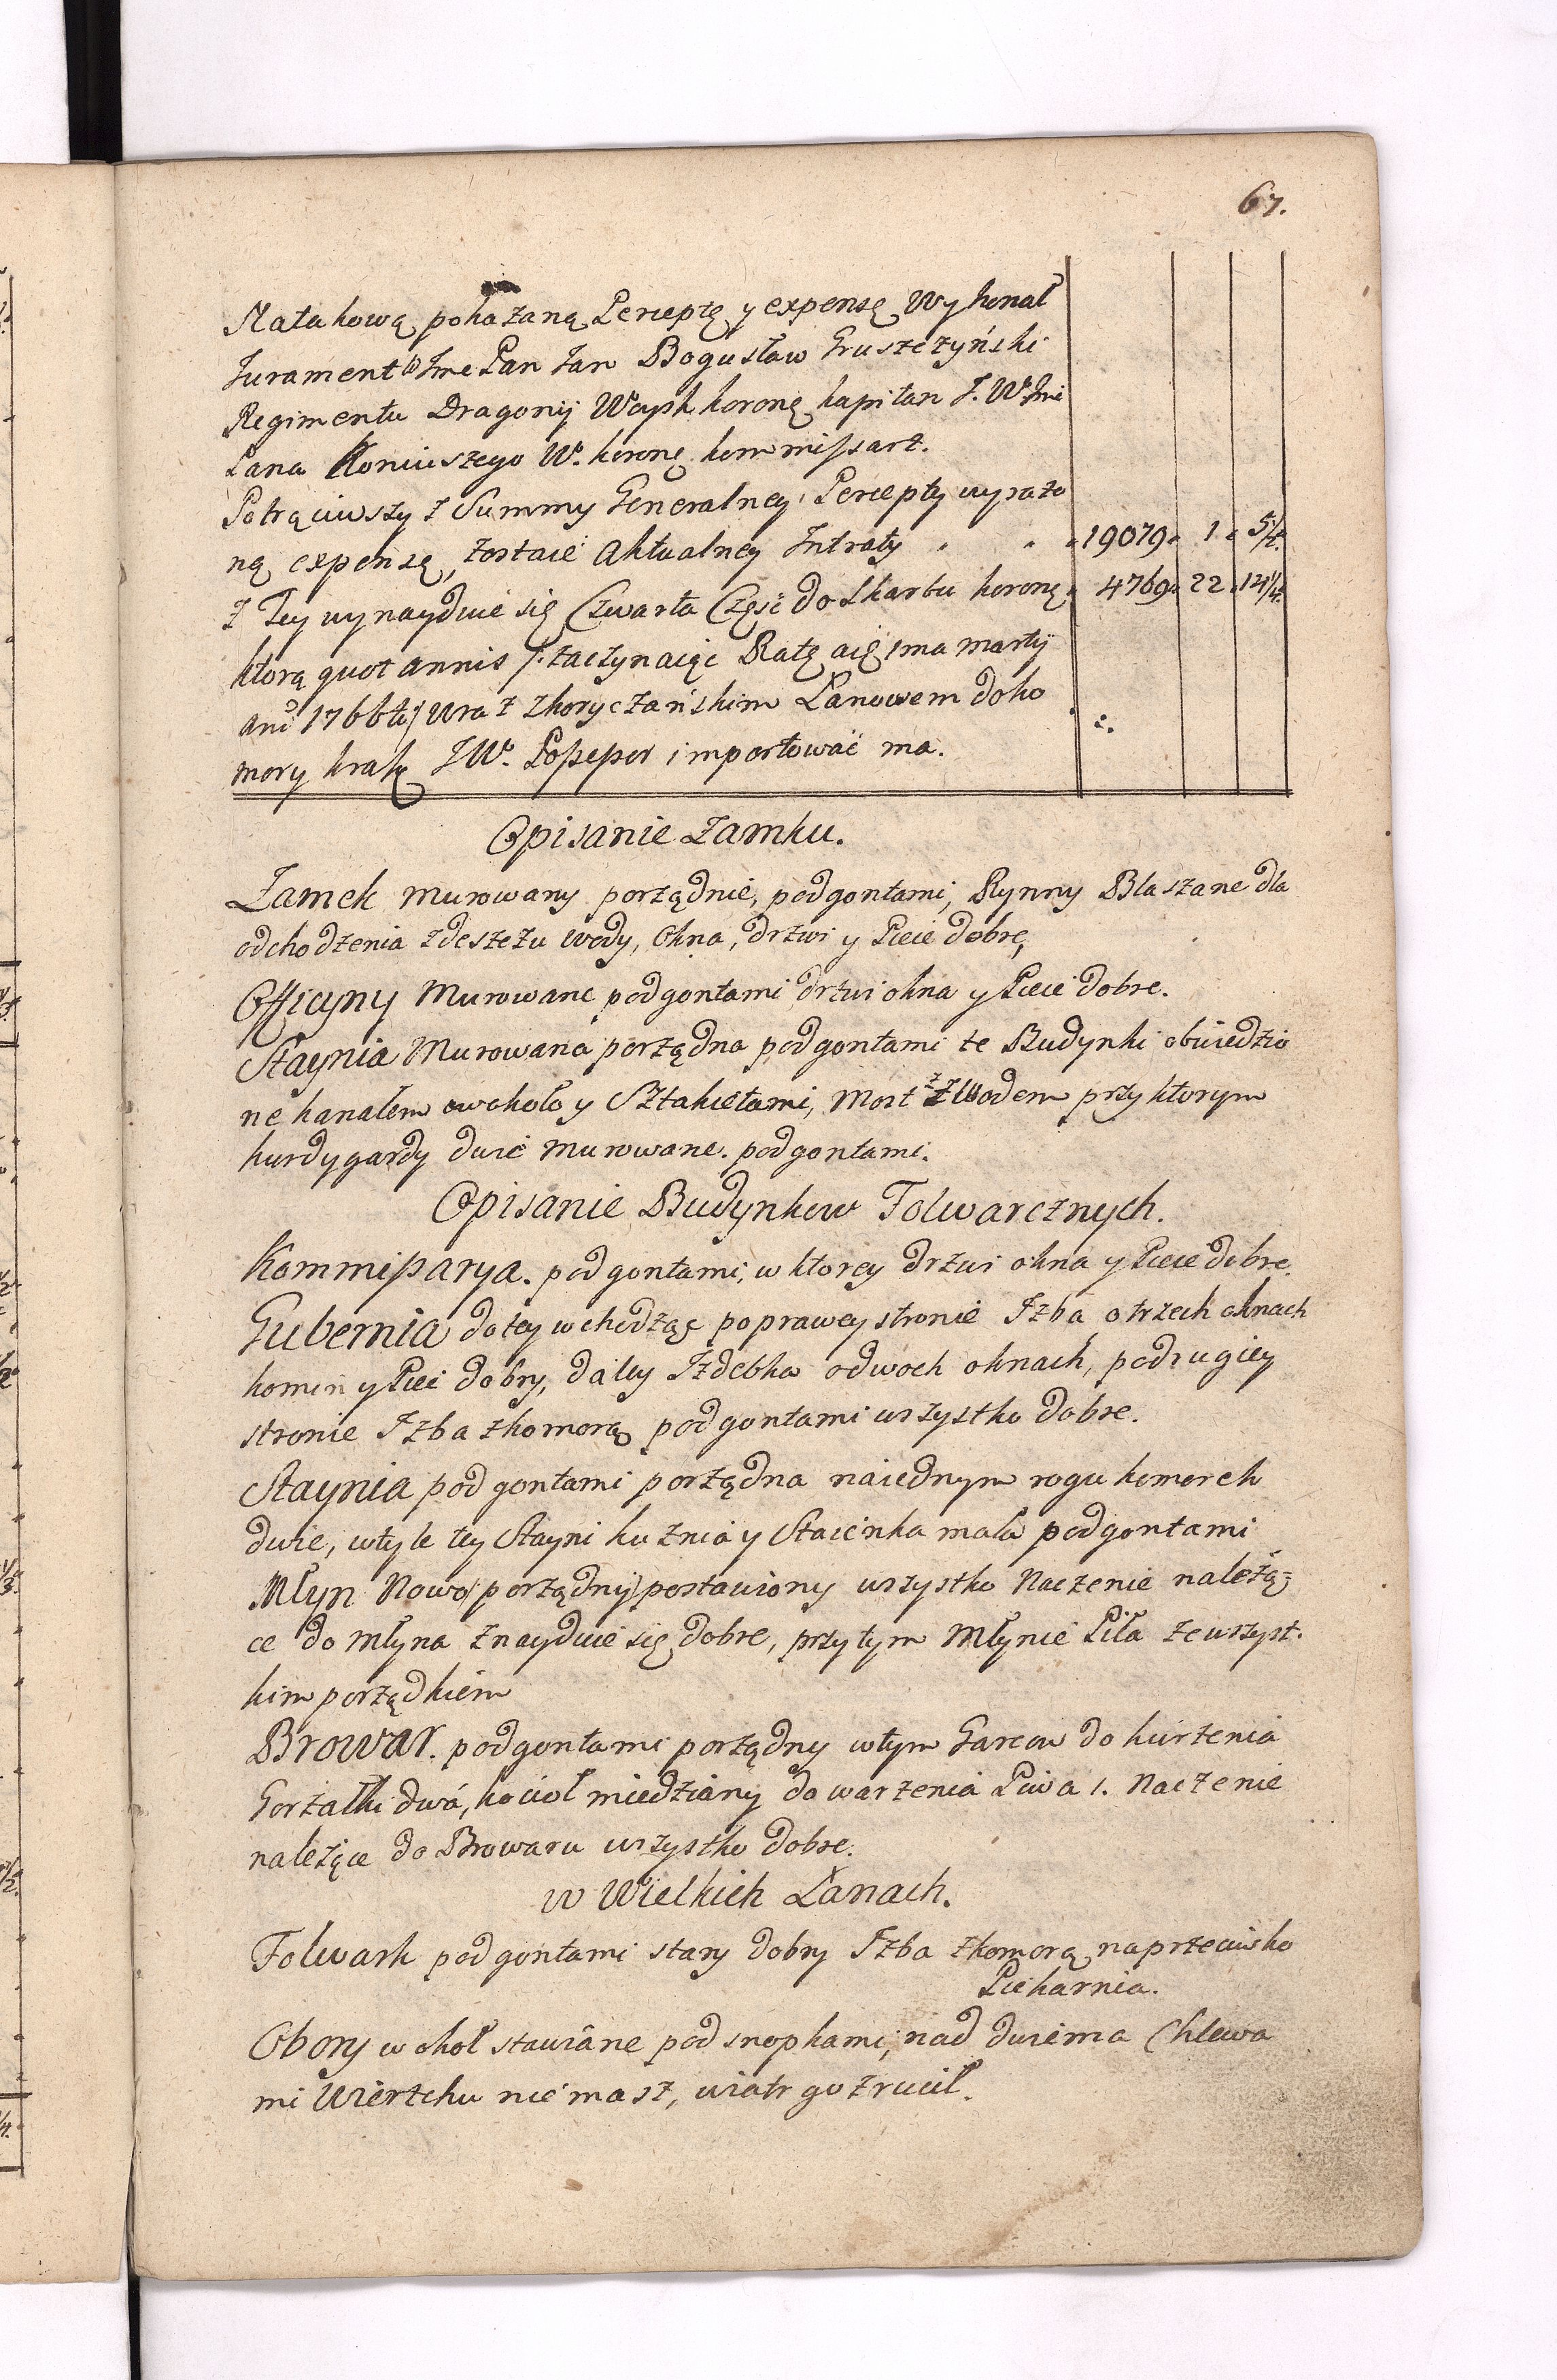 67.
Natakową pokazaną Perceptę y expensę Wykonał
Jurament W Jmć Pan Jan Bogusław Gruszczyński
Regimentu Dragonij Woysk koronę kapitan J. W Jmci
Pana Koniuszego W. koronę kommissarz.
Potrąciwszy z Summy Generalney Percepty wyrażo
ną expensę, zostaie Aktualney Intraty " " 19079. 1. 5/4.
z Tey wynaydzie się Czwarta Część do Skarbu koronę. 4769. 22. 14 1/4.
ktorą quot annis /: zaczynaiąc Ratę a 1ma Martij
anni 1766ti :/ wraz z Zkoryczańskim Łanowem do ko
mory krakę JW. Possessor importować ma.
Opisanie Zamku.
Zamek murowany porządnie, pod gontami, Rynny Blaszane dla
odchodzenia z deszczu wody, Okna, drzwi y Piece dobre,
Officyny Murowane pod gontami drzwi okna y Piece dobre.
Staynia Murowana porządna pod gontami te Budynki obwiedzio
ne kanałem wokoło y Sztakietami, Most z zwodem przy ktorym
kurdygardy dwie murowane. pod gontami.
Opisanie Budynkow Folwarcznych.
Kommissarya. pod gontami, w ktorey drzwi okna y Piece dobre.
Gubernia do tey wchodząc po prawey stronie Izba o trzech oknach
komin y Piec dobry, daley Izdebka o dwoch oknach, po drugiey
stronie Izba z komorą pod gontami wszystko dobre.
Staynia pod gontami porządna na iednym rogu komorek
dwie, w tyle tey Stayni kuznia y Staienka mała pod gontami
Młyn Nowo porządnij postawiony wszystko Naczenie należą=
ce do młyna znayduie się dobre, przy tym Młynie Piła ze wszyst.
kim porządkiem
Browar. pod gontami porządny w tym Garcow do kurzenia
Gorzałki dwa, kocioł miedziany do warzenia Piwa 1. Naczenie
należące do Browaru wszystko dobre.
w Wielkich Łanach.
Folwark pod gontami stary dobry Izba z komorą naprzeciwko
Piekarnia.
Obory w okoł stawiane pod snopkami, nad dwiema Chlewa
mi Wierzchu nie masz, wiatr go zrucił.